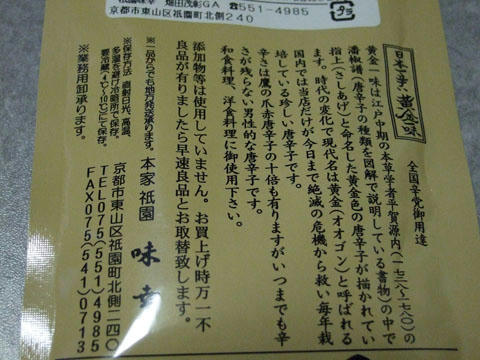 祇園味幸 畑田茂彰GA ☎551-4985
京都市東山区祇園町北側240
日本一辛い黄金一味
全国辛党御用達
黄金一味は江戸中期の本草学者平賀源内(一七二八~一七八〇)の
潘椒譜(唐辛子の種類を図解で説明している書物)の中で
指上(さしあげ)と命名した黄金色の唐辛子が描かれてい
ます。時代の変化で現代名は黄金(オオゴン)と呼ばれる
国内では当店だけが今日まで絶滅の危機から救い毎年栽
培している珍しい唐辛子です。
辛さは鷹の爪赤唐辛子の十倍も有りますがいつまでも辛
さが残らない男性的な唐辛子です。
和食料理、洋食料理に御使用下さい。
添加物等は使用していません。お買上げ時万一不
良品が有りましたら早速良品とお取替致します。
本家祇園 味幸
京都市東山区祇園町北側二四〇
TEL075(551)4985
FAX075(541)0713
※一品からでも地方発送承ります。
※保存方法 直射日光、高温、
多湿を避け冷暗所で保存。
要冷蔵(4℃~10℃)にて保存。
※業務用卸承ります。